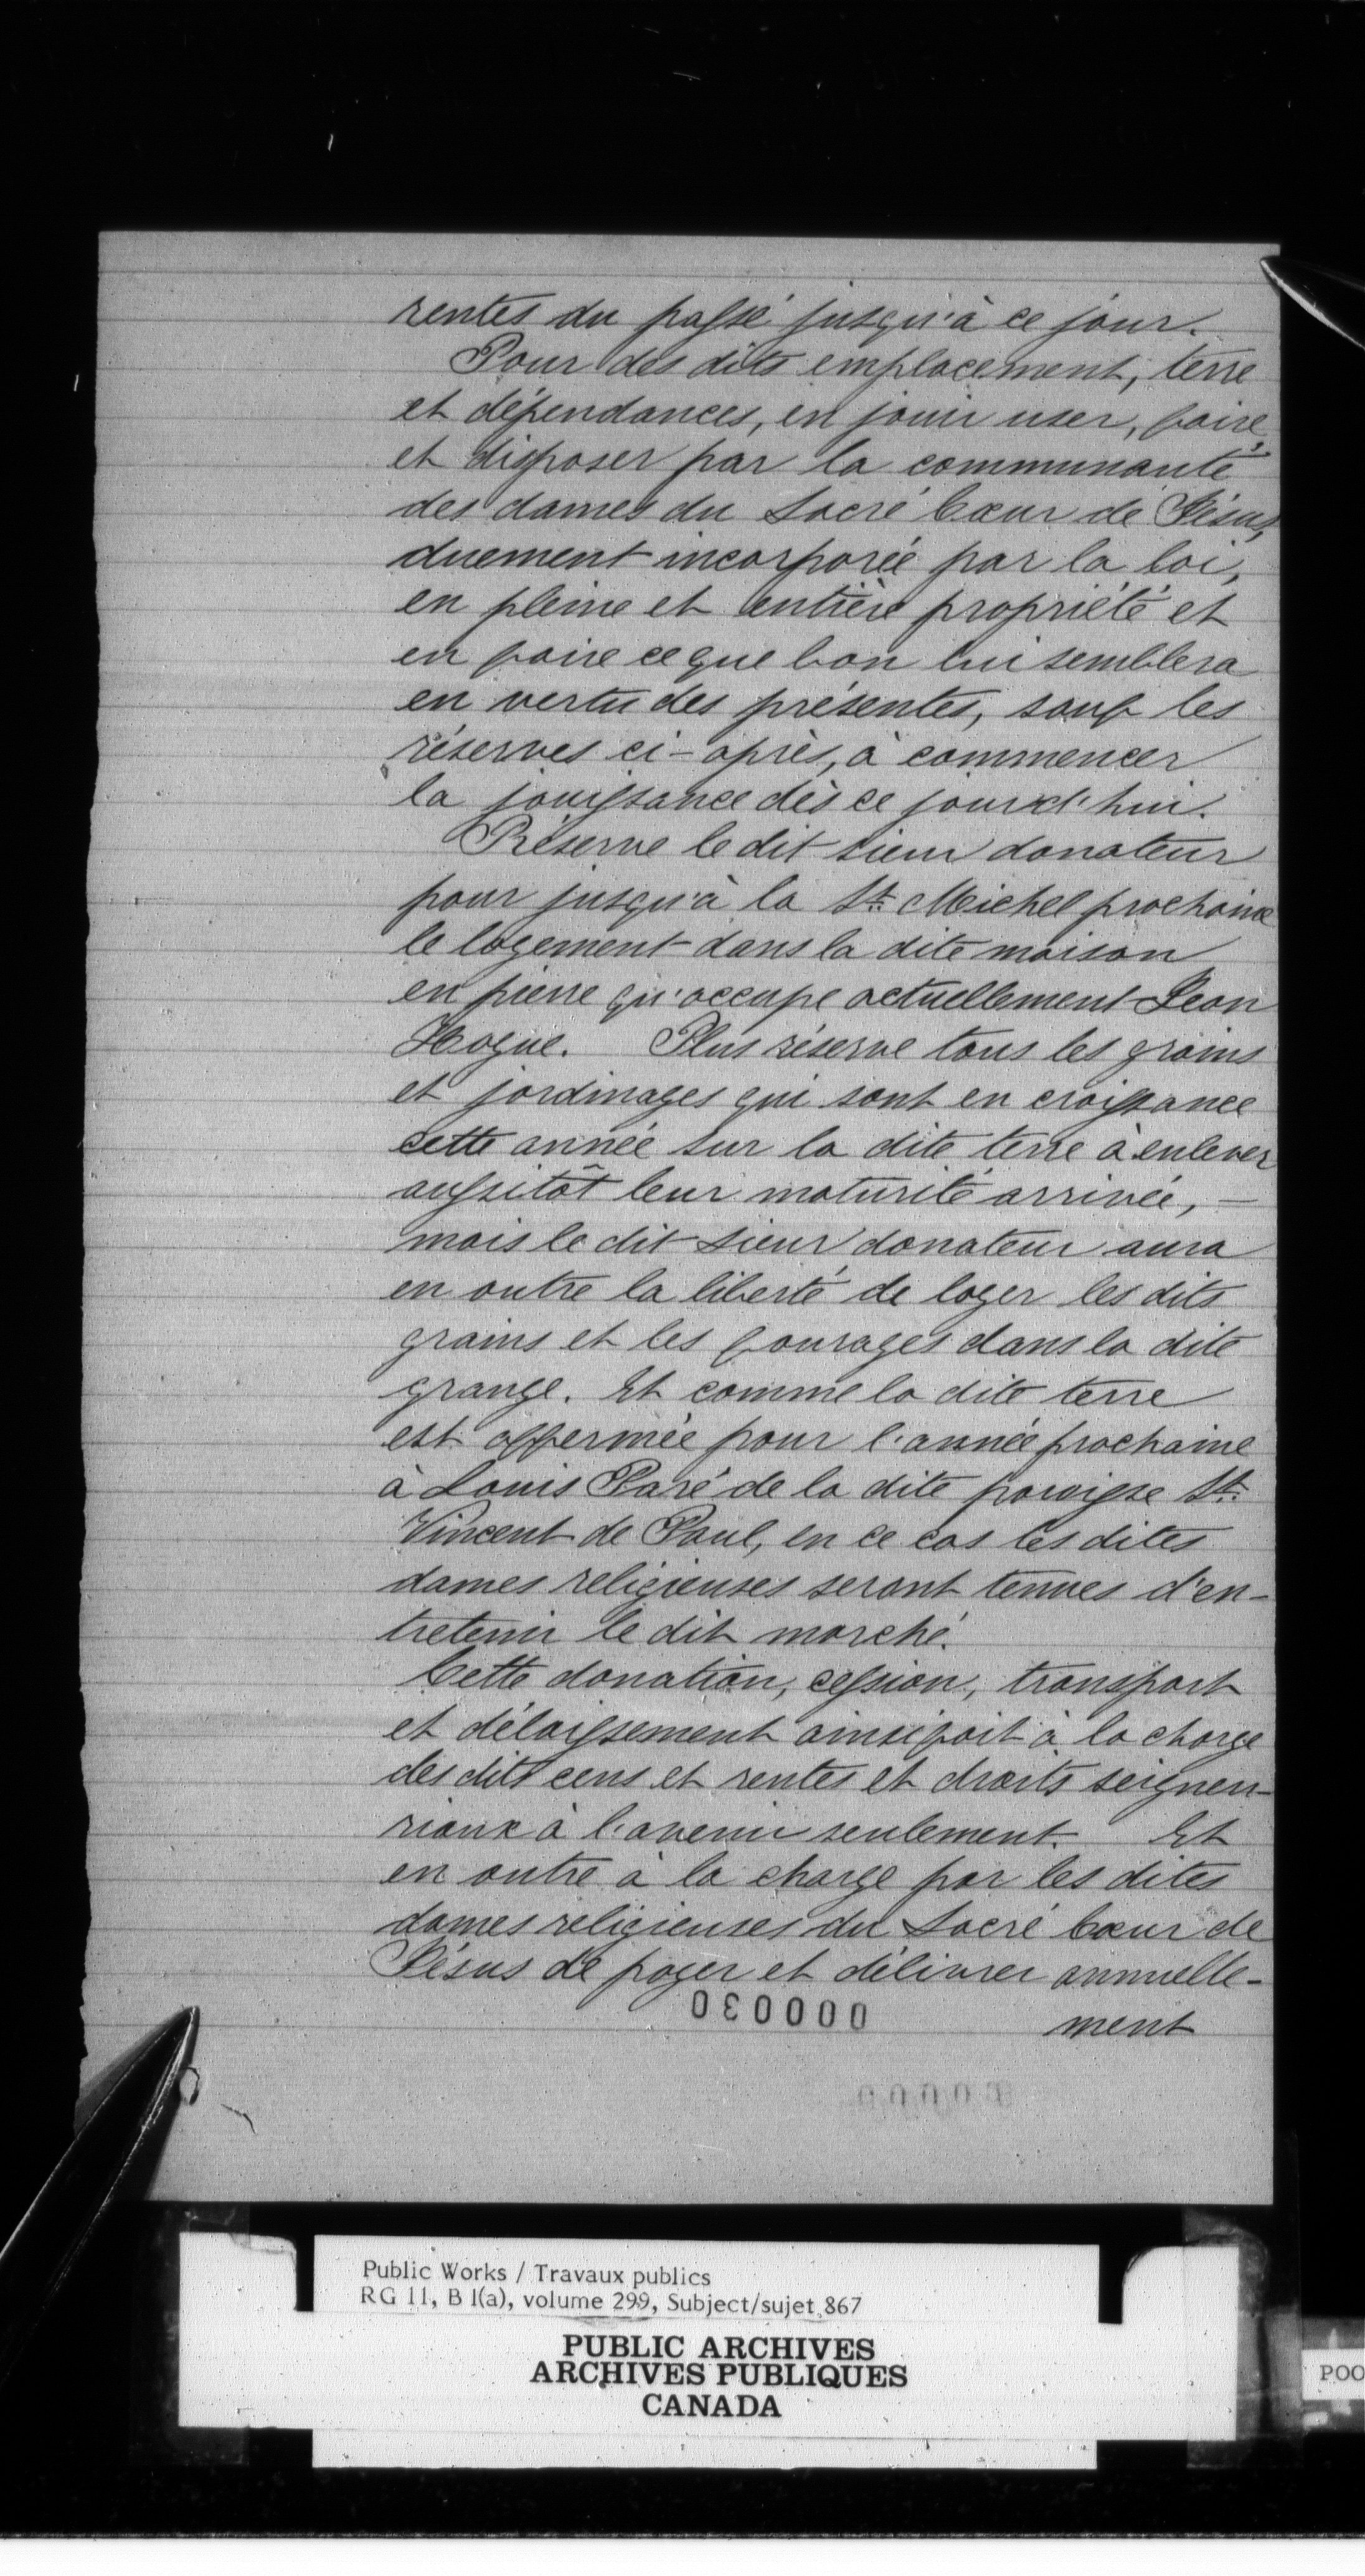 rentes du passé jusqu'à ce jour.
Pour des dits emplacement, terre
et dépendances, en jouir user, faire,
et disposer par la communauté
des dames du Sacré Cœur de Jésus,
duement incorporée par la loi,
en pleine et entière propriété et
en faire ce que bon lui semblera
en vertu des présentes, sauf les
réserves ci-après, à commencer
la jouissance dès ce jourd'hui.
Réserve le dit sieur donateur
pour jusqu'à la St. Michel prochaine
le logement dans la dite maison
en pierre qu'occupe actuellement Leon
Hogue. Plus réserve tous les grains
et jardinages qui sont en croissance
cette année sur la dite terre à enlever
aussitôt leur maturité arrivée, —
mais le dit sieur donateur aura
en outre la liberté de loger les dits
grains et les fourages dans la dite
grange. Et comme la dite terre
est affermée pour l'année prochaine
à Louis Paré de la dite paroisse St.
Vincent de Paul, en ce cas les dites
dames religieuses seront tenues d'en-
tretenir le dit marché.
Cette donation, cession, transport
et délaissement ainsi fait à la charge
des dits cens et rentes et droits seigneu-
riaux à l'avenir seulement. Et
en outre à la charge par les dites
dames religieuses du Sacré Cœur de
Jésus de payer et délivrer annuelle-
ment
000030
Public Works / Travaux publics
RG 11, B 1(a), volume 299, Subject/sujet 867
PUBLIC ARCHIVES
ARCHIVES PUBLIQUES
CANADA
POO